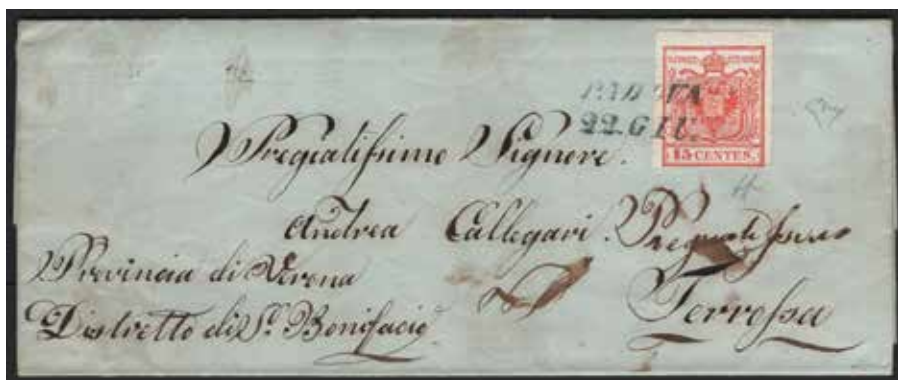 PADOVA
22. GIU.
15 CENTES.
Pregiatissimo Signore.
Andrea Callegari. Pregiatissimo
Provincia di Verona
Distretto di S. Bonifacio
Terrossa